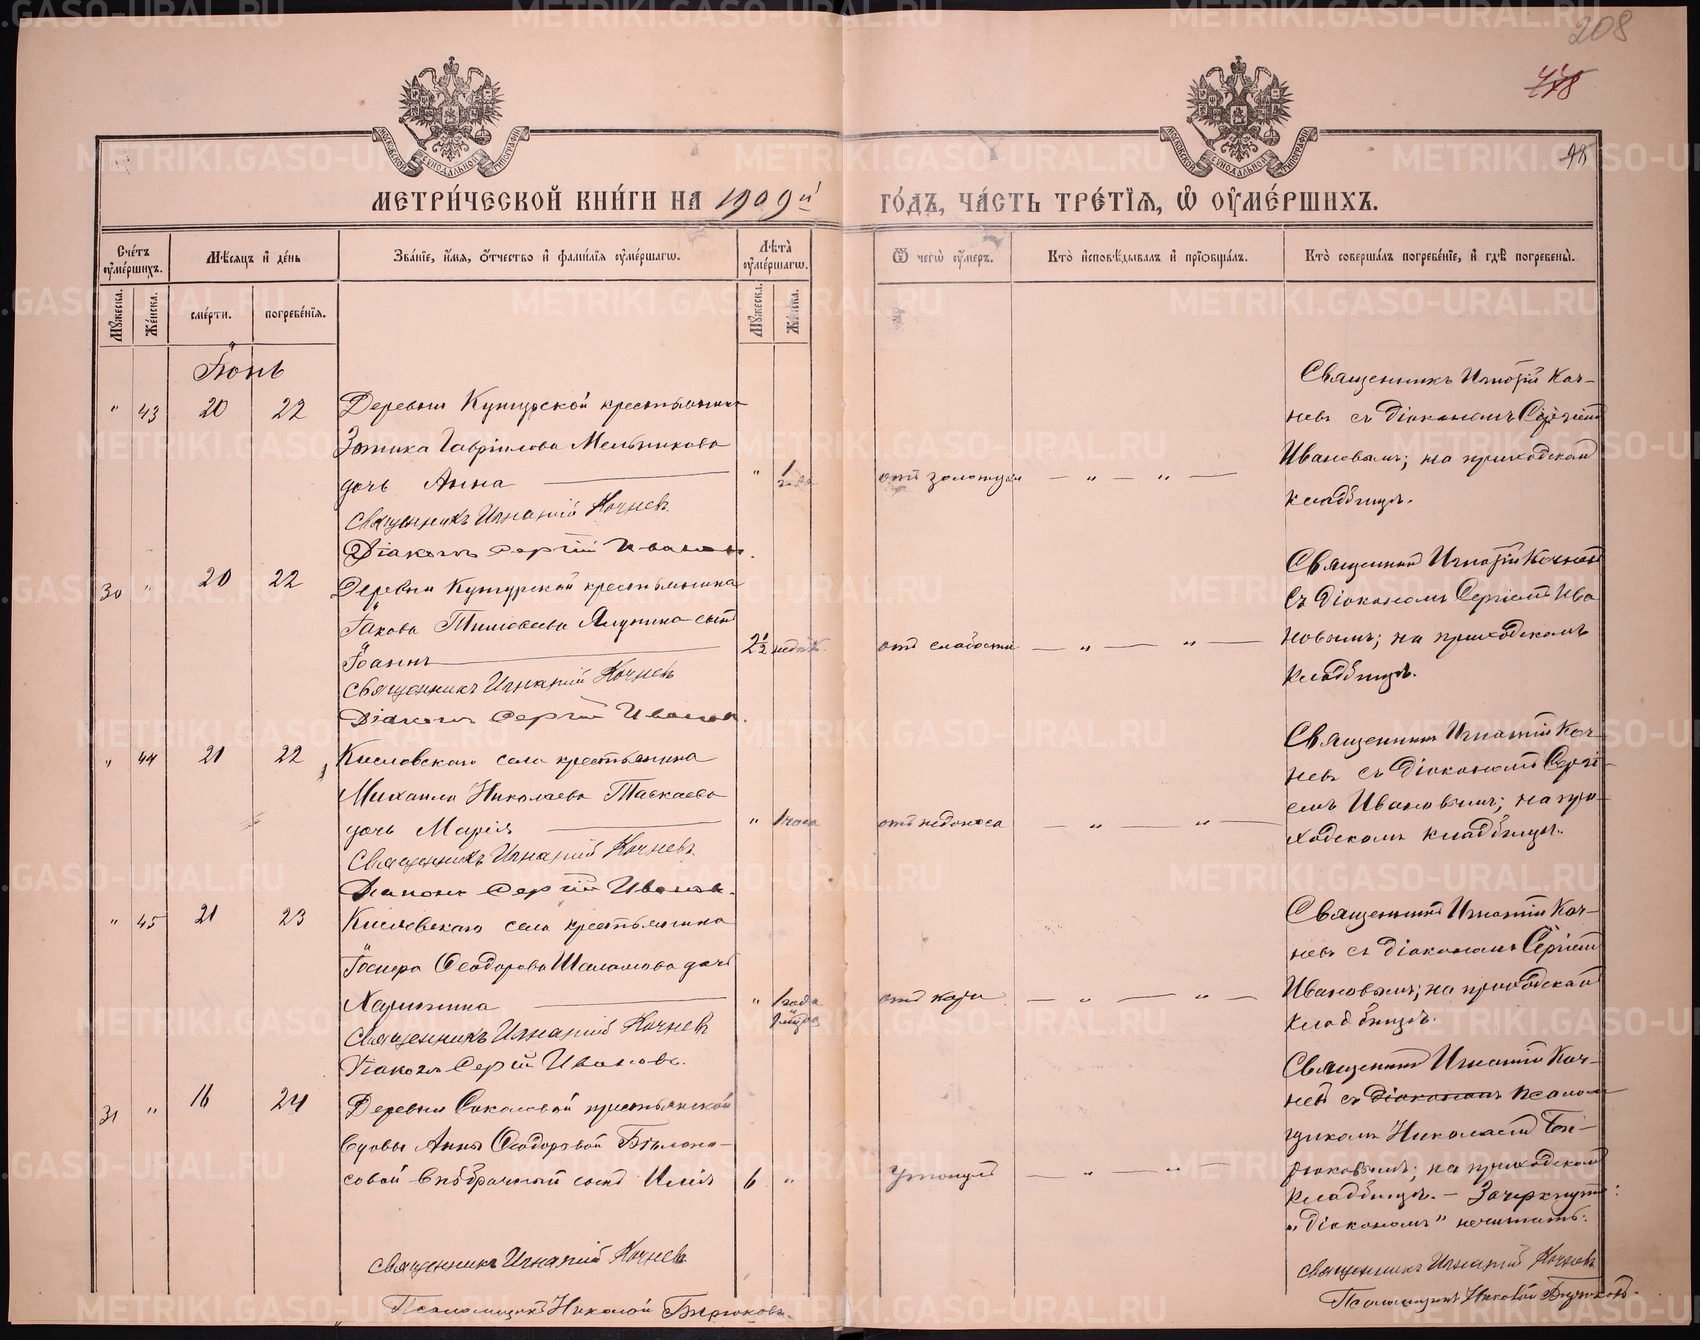 208
48
МЕТРИ́ЧЕСКОЙ КНИ́ГИ НА 1909й ГО́ДЪ, ЧА́СТЬ ТРЕ́ТІѦ, Ѡ ОУМЕ́РШИХЪ.
Сче́тъ оумє́ршихъ.
Мѣсяцъ и де́нь
Зва́ніе, и́мя, о́тчество и фами́лія оуме́ршагѡ.
Лѣта̀ оуме́ршагѡ.
Ѿ чегѡ̀ оу́меръ.
Кто̀ исповѣ́дывалъ и пріѡбща́лъ.
Кто̀ соверша́лъ погребе́ніе, и гдѣ̀ погребены̀.
Мꙋжеска. Же́нска. сме́рти. погребе́нія. Мꙋжеска. Же́нска.
Іюнь
" 43 20 22 Деревни Кунгурской крестьянина
Зотика Гавріилова Мельникова
дочь Анна " 1 года
Священникъ Игнатій Кочневъ
Діаконъ Сергій Ивановъ.
отъ золотухи — " — " —
Священникъ Игнатій Коч-
невъ съ діакономъ Сергіемъ
Ивановымъ; на приходском
кладбищѣ.
30 " 20 22 Деревни Кунгурской крестьянина
Іакова Тимоѳеева Ялунина сынъ
Іоаннъ 2½ недѣл.
Священникъ Игнатій Кочневъ
Діаконъ Сергій Ивановъ.
отъ слабости — " — " —
Священник Игнатій Кочневъ
съ діакономъ Сергіемъ Ива
новымъ; на приходскомъ
кладбищѣ.
" 44 21 22 Кисловскаго села крестьянина
Михаила Николаева Таскаева
дочь Марія " 1 часа
Священникъ Игнатій Кочневъ
Діаконъ Сергій Ивановъ.
отъ недоноса — " — " —
Священник Игнатій Коч-
невъ съ діакономъ Сергі-
емъ Ивановымъ; на при-
ходскомъ кладбищѣ.
" 45 21 23 Кисловскаго села крестьянина
Іосифа Ѳеодорова Шаламова дочь
Харитина " 1 года
Священникъ Игнатій Кочневъ
Діаконъ Сергій Ивановъ.
отъ кори — " — " —
Священникъ Игнатій Коч-
невъ съ діакономъ Сергіем
Ивановымъ; на приходском
кладбищѣ.
31 " 16 24 Деревни Соколовой крестьянской
вдовы Анны Ѳеодоровой Бѣлоно-
совой внѣбрачный сынъ Илія 6 "
Утонулъ — " — " —
Священник Игнатій Коч-
невъ съ діакономъ псалом
щикомъ Николаемъ Би-
рюковымъ; на приходском
кладбищѣ. — Зачеркнутое:
„діакономъ" нечитать.
Священникъ Игнатій Кочневъ
Псаломщикъ Николай Бирюковъ.
Священникъ Игнатій Кочневъ
Псаломщикъ Николай Бирюковъ.
METRIKI.GASO-URAL.RU